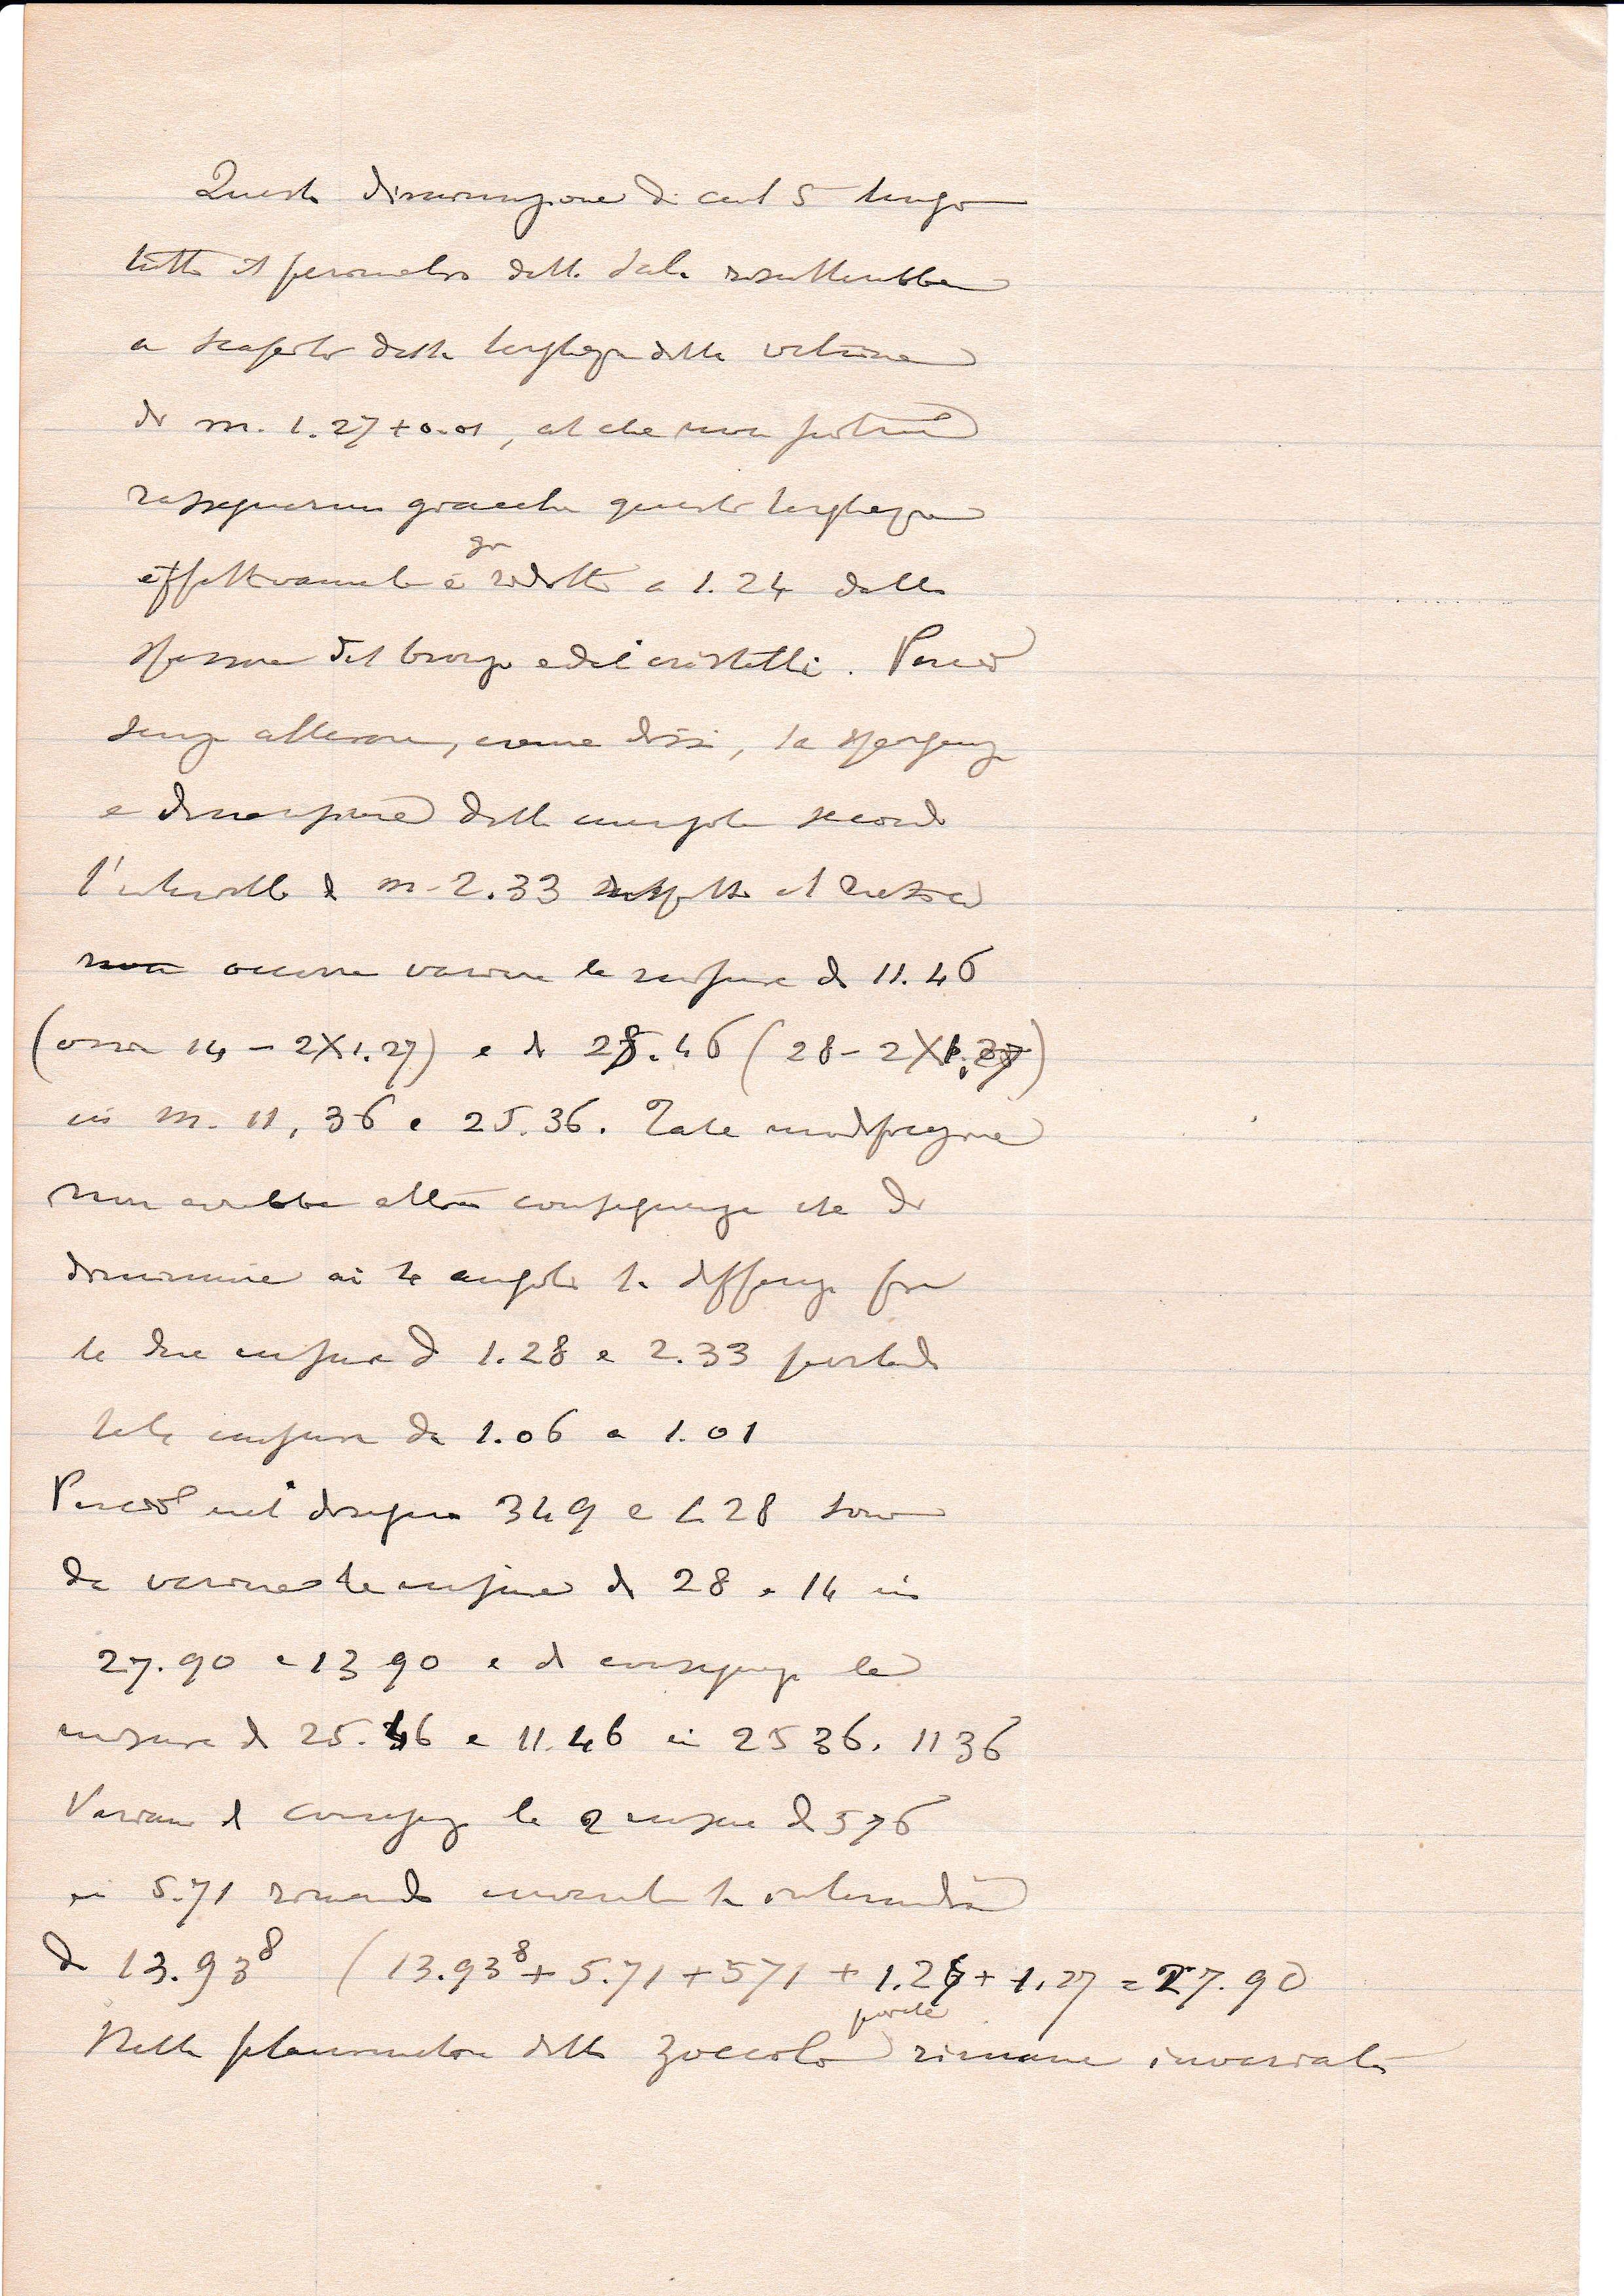 Questa diminuzione di cent 5 lungo
tutto il perimetro della sala risulterebbe
a scapito della larghezza delle vetrine
di m. 1.27 + 0.01, al che non potrei
rassegnarmi giacchè questa larghezza
già
effettivamente è ridotta a 1.24 dallo
spessore del bronzo e dei cristalli. Perciò
senza alterare, come dissi, la sporgenza
e dimensione delle mensole secondo
l'intervallo di m. 2.33
occorre variare le misure di 11.46
(ossia 14 - 2X1.27) e di 25.46 (28 - 2X1.27)
in m. 11,36 e 25.36. Tale modificazione
non avrebbe altra conseguenza che di
diminuire ai 4 angoli la differenza fra
le due misure di 1.28 e 2.33 portando
tale misura da 1.06 a 1.01
Perciò nel disegno 349 e 428 sono
da variare le misure di 28 e 14 in
27.90 e 13 90 e di conseguenza le
misure di 25.46 e 11.46 in 25 36. 11 36
Variano di conseguenza le 2 misure di 576
in 5.71 rimanendo invariata la intermedia
di 13.93⁸ (13.93⁸ + 5.71 + 571 + 1.27 + 1.27 = 27.90
parete
Nella planimetria dello zoccolo rimane invariata